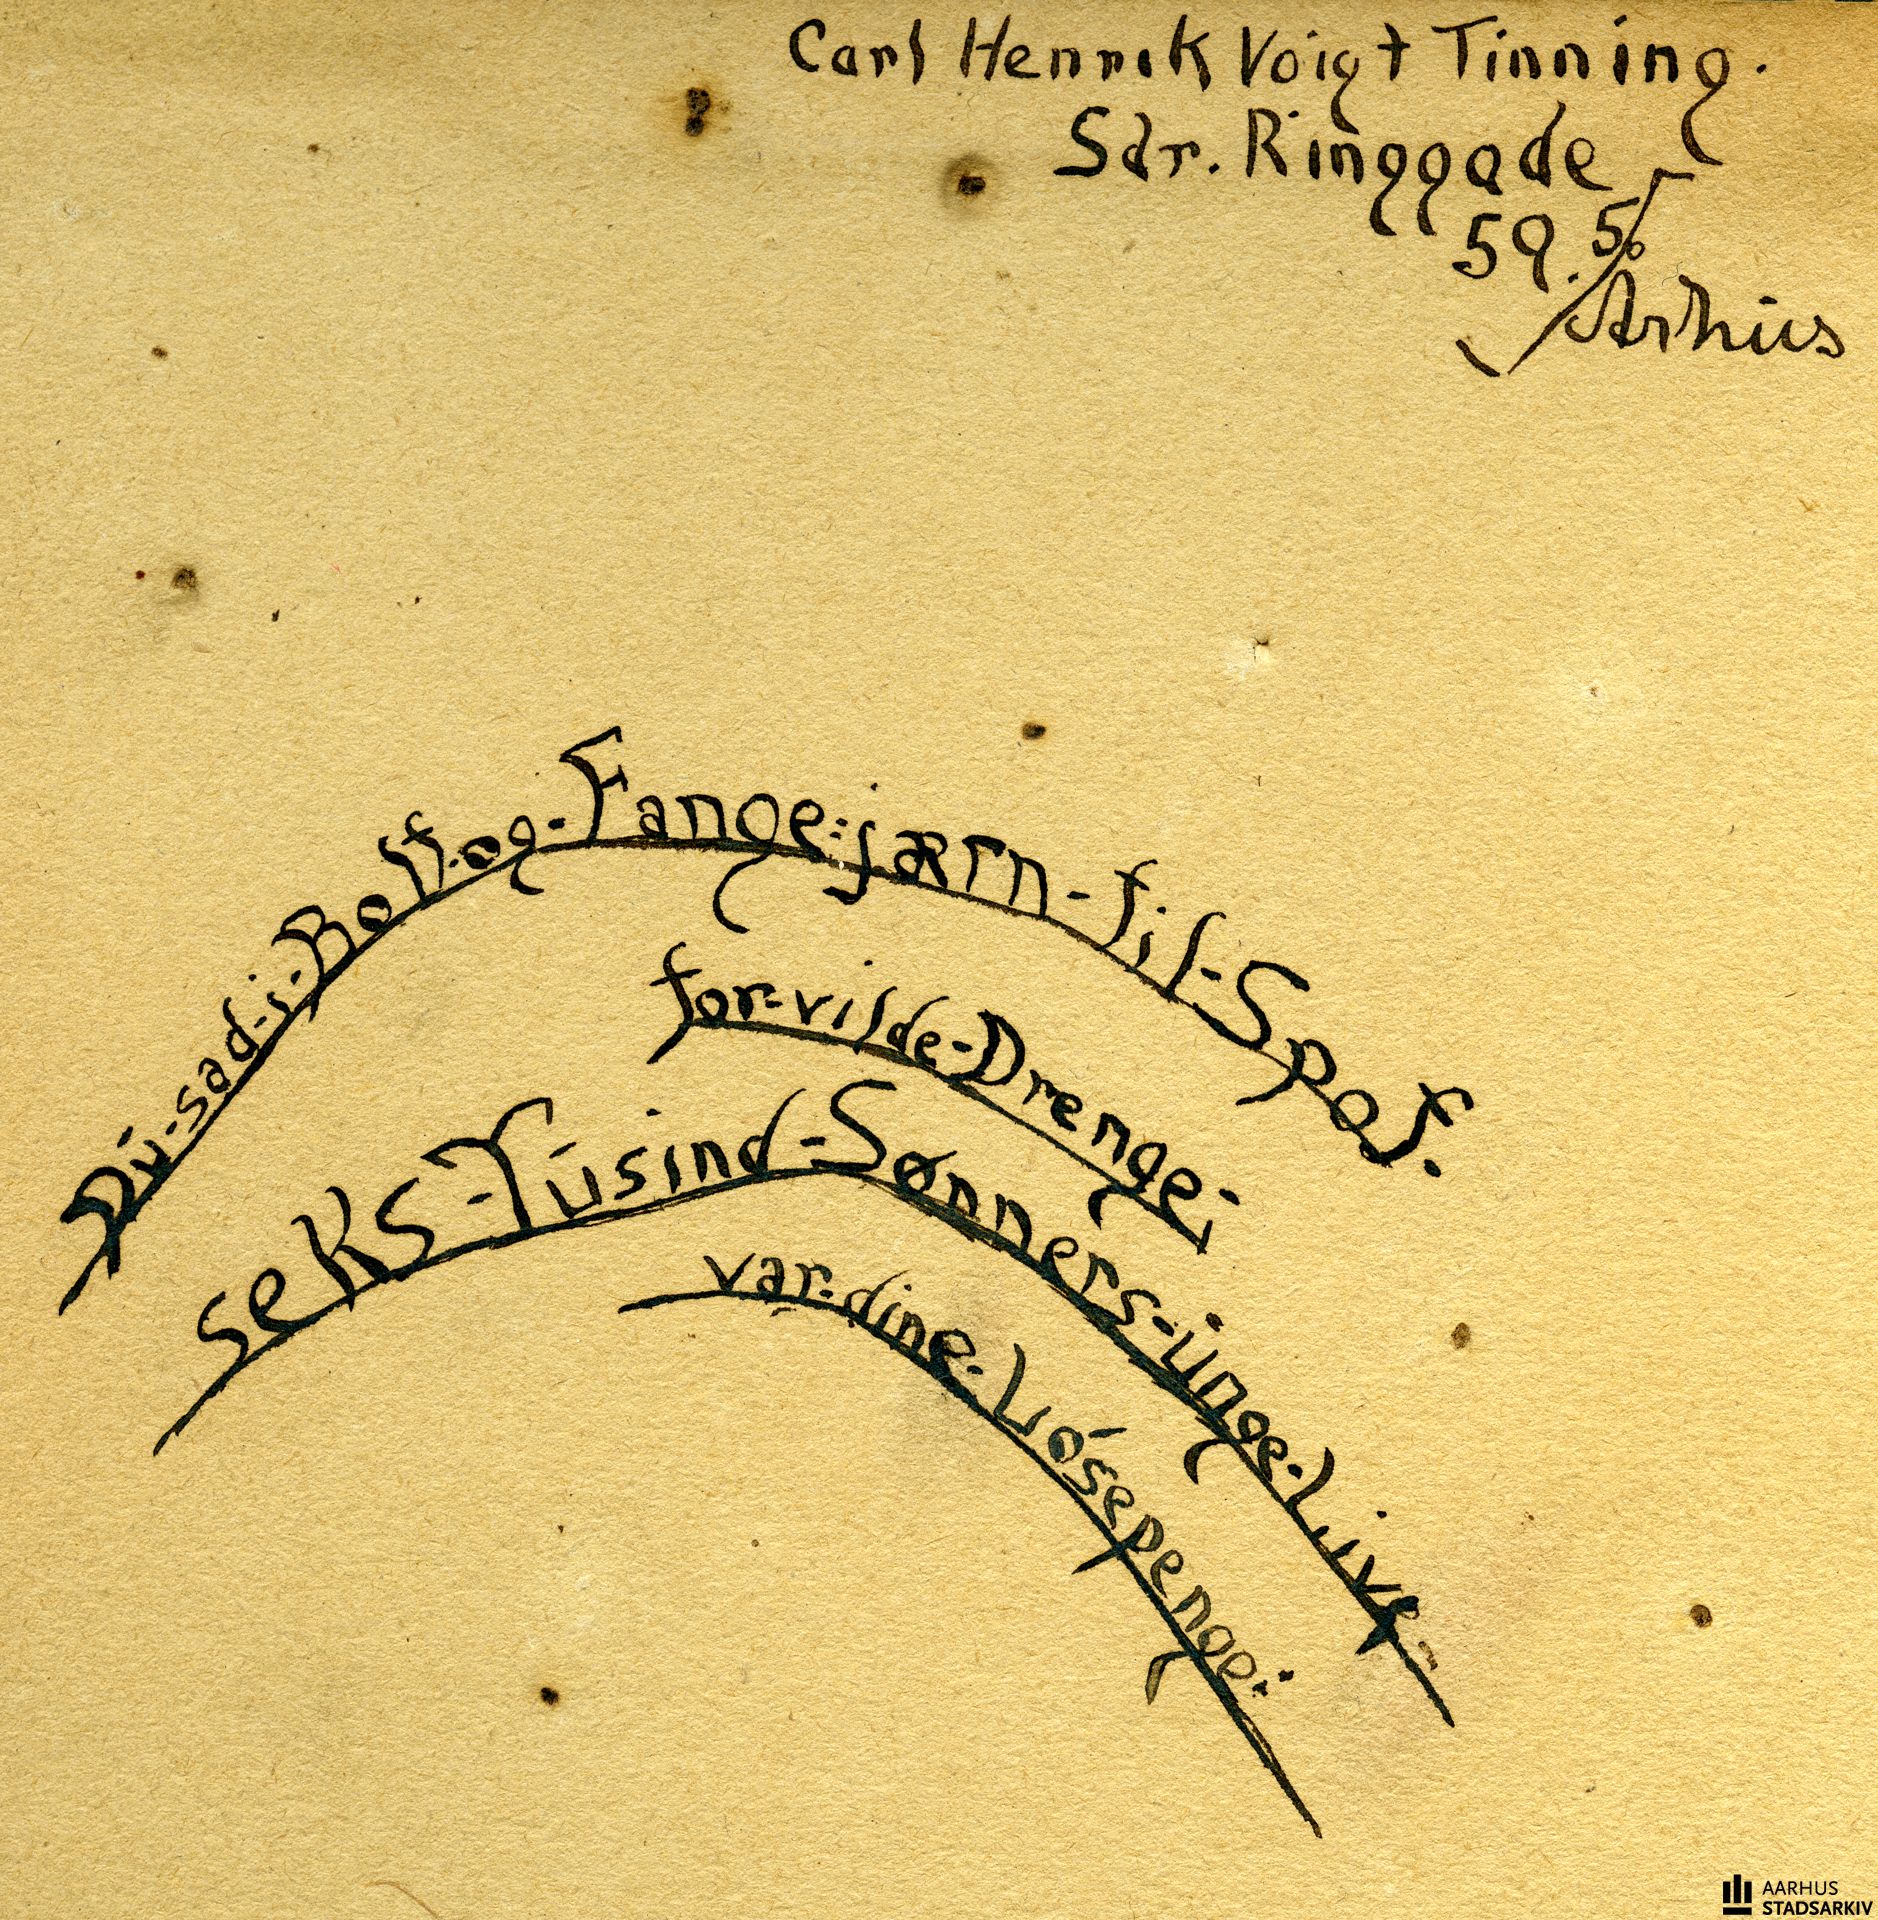 Carl Henrik Voigt Tinning.
Sdr. Ringgade
59. 5
Århus
Dü-sad-i-Bolt-og-Fange:jærn-til-Spot.
for-vilde-Drenge:
seks-Tüsind-Sønners-ünge-Liv-
var-dine-Lösepenge:
AARHUS
STADSARKIV